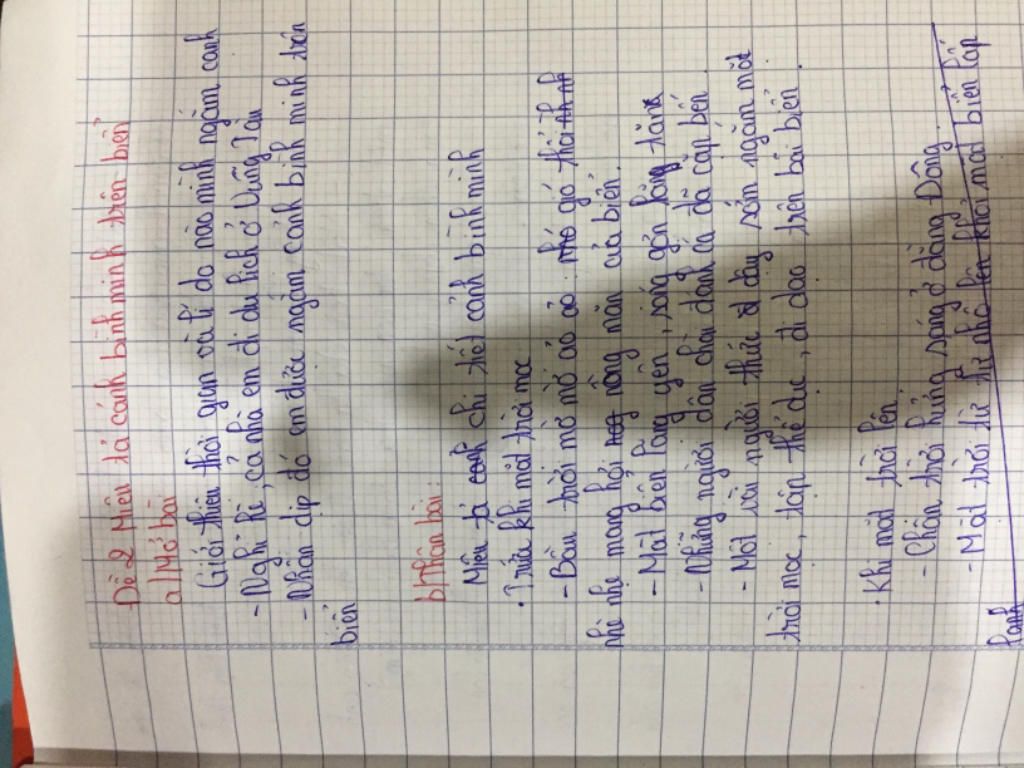 Đề 2 Miêu tả cảnh bình minh trên biển
a/ Mở bài
Giới thiệu thời gian và lí do nào mình ngắm cảnh
- Nghỉ hè, cả nhà em đi du lịch ở Vũng Tàu
- Nhân dịp đó em được ngắm cảnh bình minh trên
biển
b/ Thân bài:
Miêu tả cảnh chi tiết cảnh bình minh
. Trước khi mặt trời mọc
- Bầu trời mờ mờ ảo ảo: gió thổi
nhè nhẹ mang hơi nồng mặn của biển.
- Mặt biển lặng yên, sóng gợn lăng tăng
- Những người dân chài đánh cá đã cập bến.
- Một vài người thức dậy sớm ngắm mặt
trời mọc, tập thể dục, đi dạo trên bãi biển.
. Khi mặt trời lên.
- Chân trời hửng sáng ở đằng Đông.
- Mặt trời từ từ nhô lên khỏi mặt biển lấp
lánh